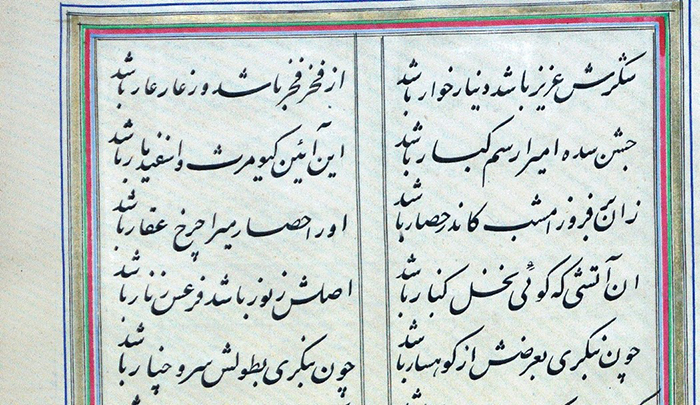 شکرش عزیز باشد دینار خوار باشد
از فخر فخر باشد وز عار عار باشد
جشن سده امیرا رسم کبار باشد
این آئین کیومرث و اسفندیار باشد
زان برفروز امشب کاندر حصار باشد
او را حصار میرا چرخ عفار باشد
ان آتشی که گوئی نخل کنار باشد
اصلش ز نور باشد فرعش ز نار باشد
چون بنگری بعرضش از کوهسار باشد
چون بنگری بطولش سرو و چنار باشد